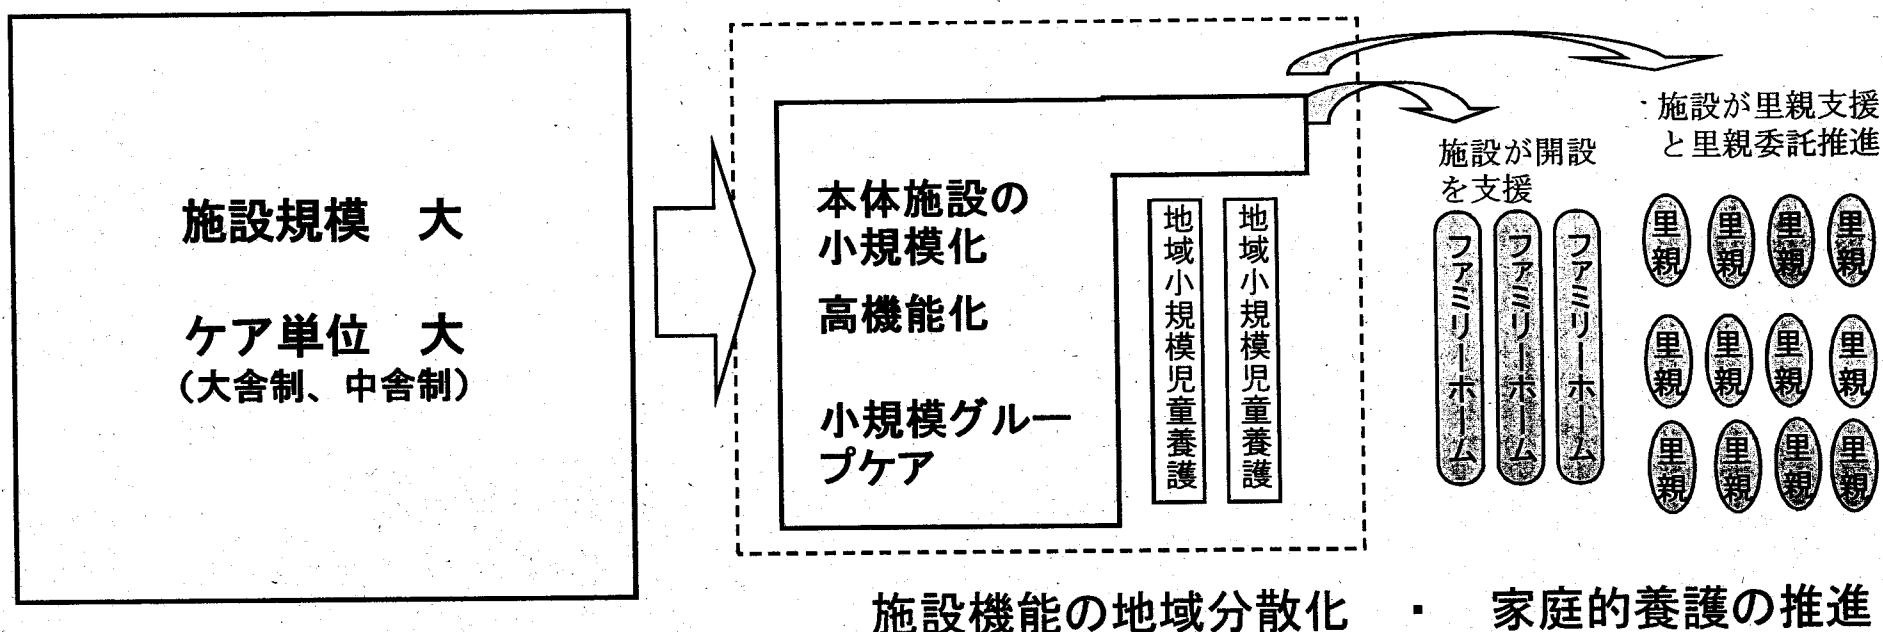 施設規模　大
ケア単位　大
（大舎制、中舎制）
本体施設の
小規模化
高機能化
小規模グルー
プケア
地域小規模児童養護
地域小規模児童養護
施設が開設
を支援
ファミリーホーム
ファミリーホーム
ファミリーホーム
施設が里親支援
と里親委託推進
里親
里親
里親
里親
里親
里親
里親
里親
里親
里親
里親
里親
施設機能の地域分散化　・　家庭的養護の推進